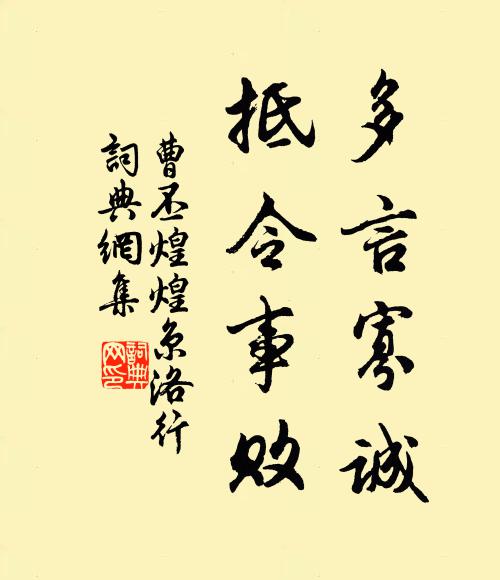 多言寡誠
抵令事敗
曹丕煌煌京洛行
詞典網集
詞典
網印